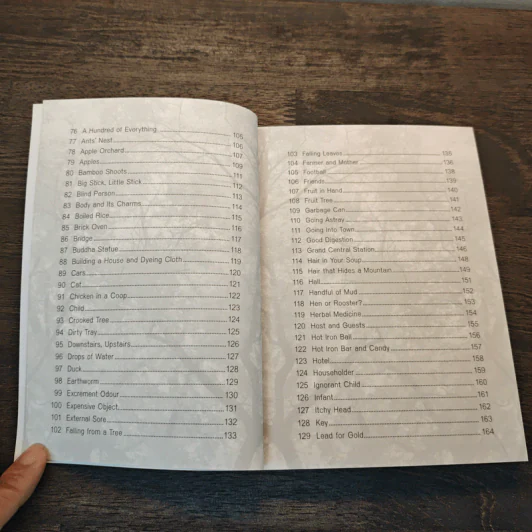 76 A Hundred of Everything 105
77 Ants' Nest 106
78 Apple Orchard 107
79 Apples 109
80 Bamboo Shoots 111
81 Big Stick, Little Stick 112
82 Blind Person 113
83 Body and Its Charms 114
84 Boiled Rice 115
85 Brick Oven 116
86 Bridge 117
87 Buddha Statue 118
88 Building a House and Dyeing Cloth 119
89 Cars 120
90 Cat 121
91 Chicken in a Coop 122
92 Child 123
93 Crooked Tree 124
94 Dirty Tray 125
95 Downstairs, Upstairs 126
96 Drops of Water 127
97 Duck 128
98 Earthworm 129
99 Excrement Odour 130
100 Expensive Object 131
101 External Sore 132
102 Falling from a Tree 133
103 Falling Leaves 135
104 Farmer and Mother 136
105 Football 138
106 Friends 139
107 Fruit in Hand 140
108 Fruit Tree 141
109 Garbage Can 142
110 Going Astray 143
111 Going into Town 144
112 Good Digestion 145
113 Grand Central Station 146
114 Hair in Your Soup 148
115 Hair that Hides a Mountain 149
116 Hall 151
117 Handful of Mud 152
118 Hen or Rooster? 153
119 Herbal Medicine 154
120 Host and Guests 155
121 Hot Iron Ball 156
122 Hot Iron Bar and Candy 157
123 Hotel 158
124 Householder 159
125 Ignorant Child 160
126 Infant 161
127 Itchy Head 162
128 Key 163
129 Lead for Gold 164